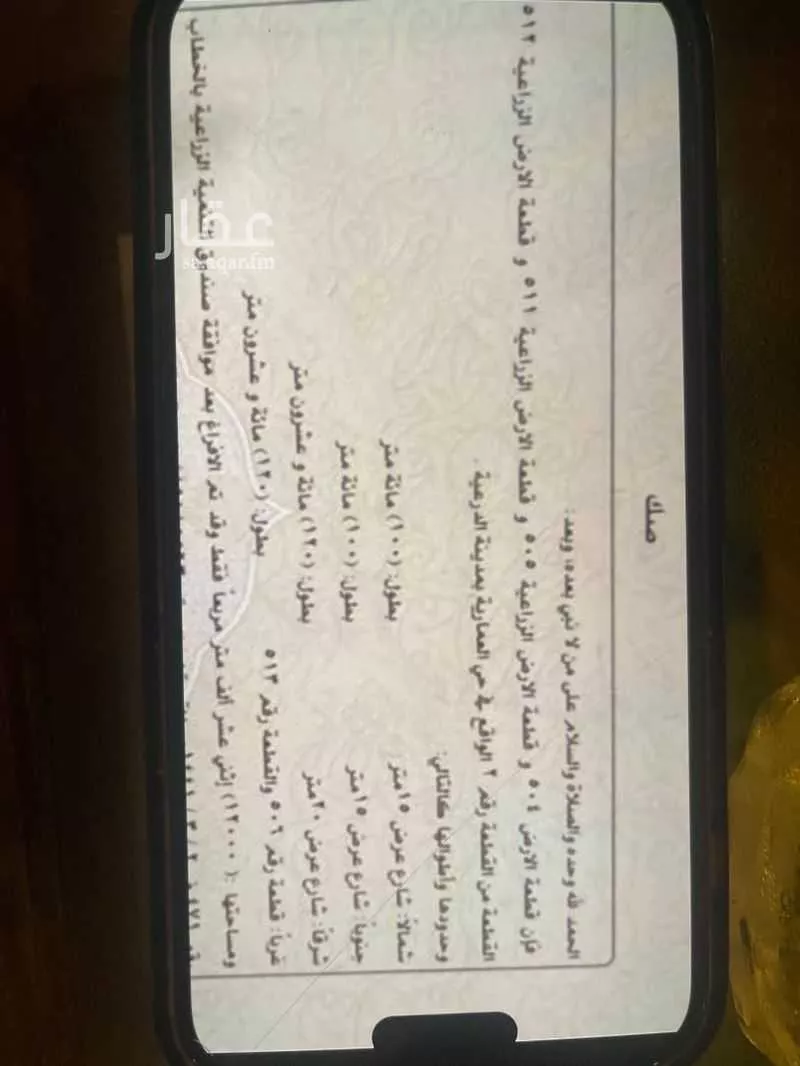 صك
الحمد لله وحده والصلاة والسلام على من لا نبي بعده، وبعد:
فإن قطعة الارض ٥٠٤ و قطعة الارض الزراعية ٥٠٥ و قطعة الارض الزراعية ٥١١ و قطعة الارض الزراعية ٥١٢
القطعة من القطعة رقم ٢ الواقع في حي العمارية بمدينة الدرعية .
وحدودها وأطوالها كالتالي:
شمالاً: شارع عرض ١٥متر بطول: (١٠٠) مائة متر
جنوباً: شارع عرض ١٥متر بطول: (١٠٠) مائة متر
شرقاً: شارع عرض ٢٠متر بطول: (١٢٠) مائة و عشرون متر
غرباً: قطعة رقم ٥٠٦ والقطعة رقم ٥١٣ بطول: (١٢٠) مائة و عشرون متر
ومساحتها :( ١٢٠٠٠) إثني عشر ألف متر مربعاً فقط وقد تم الافراغ بعد موافقة صندوق التنمية الزراعية بالخطاب
عقار
sa.aqar.fm